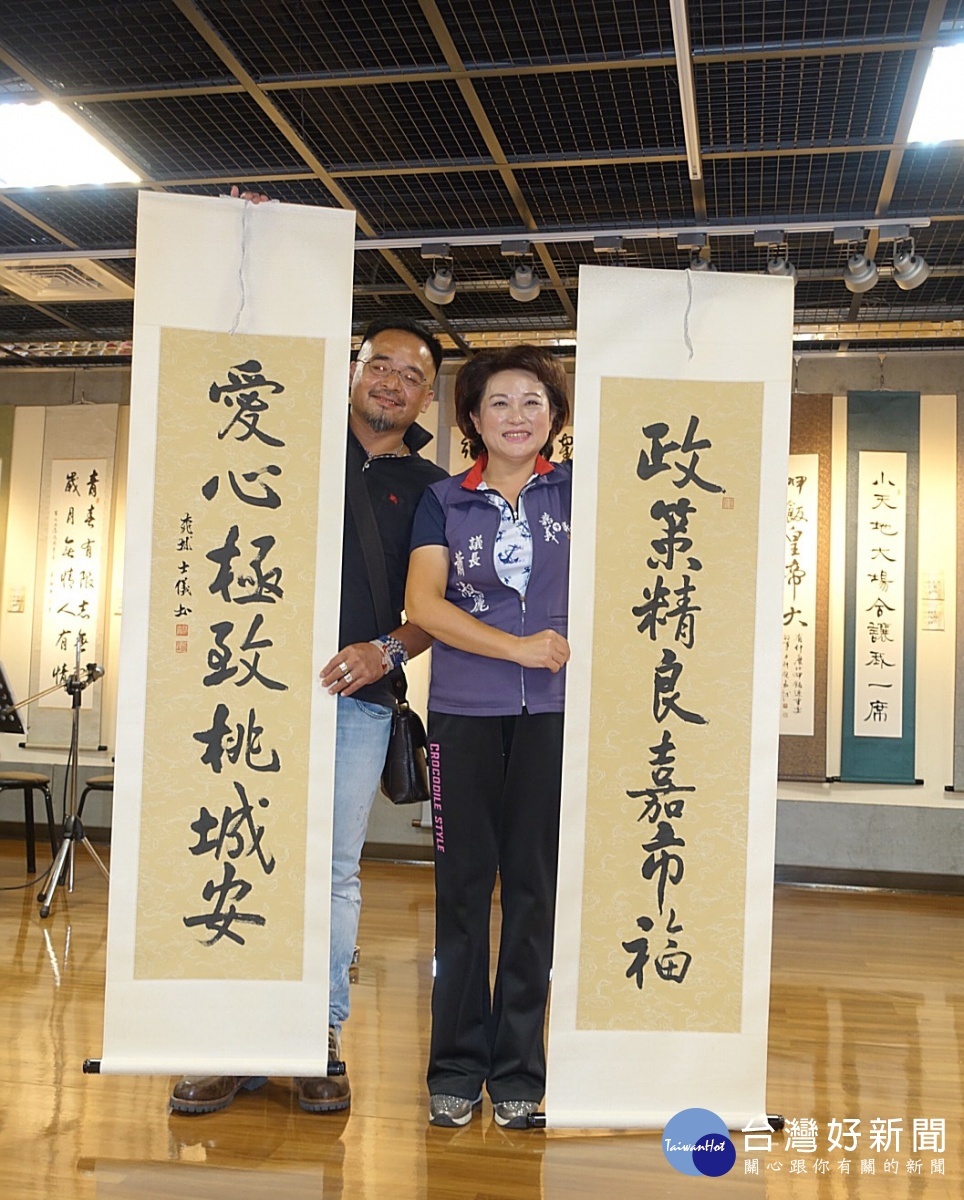 政策精良嘉市福
愛心極致桃城安
士儀書
嘉義市
議長
蕭淑麗
CROCODILE STYLE
青春有限志無
歲月無情人有情
小天地大場合讓我一席
皇帝大
TaiwanHot
台灣好新聞
關心跟你有關的新聞